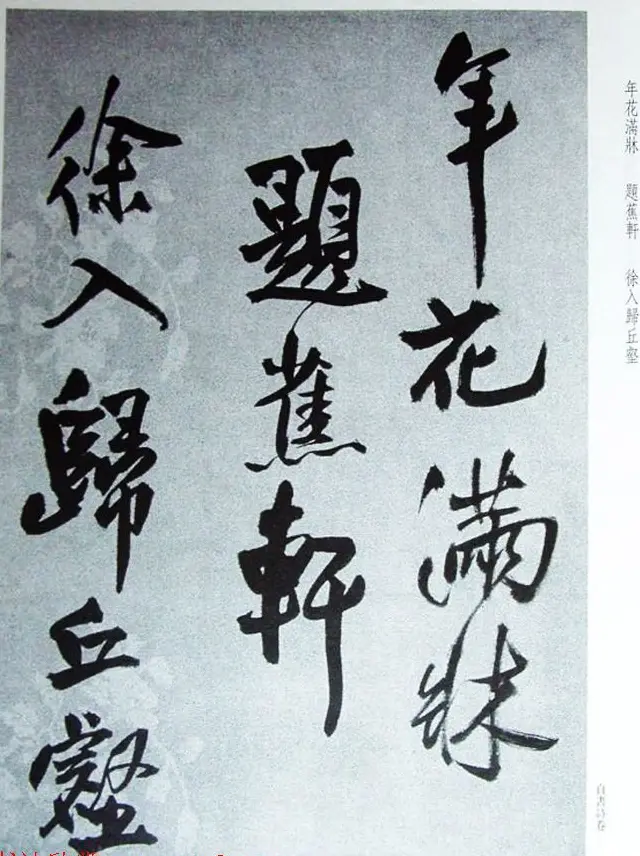 年花滿牀
題蕉軒
徐入歸丘壑
年花滿牀　題蕉軒　徐入歸丘壑
自書詩卷